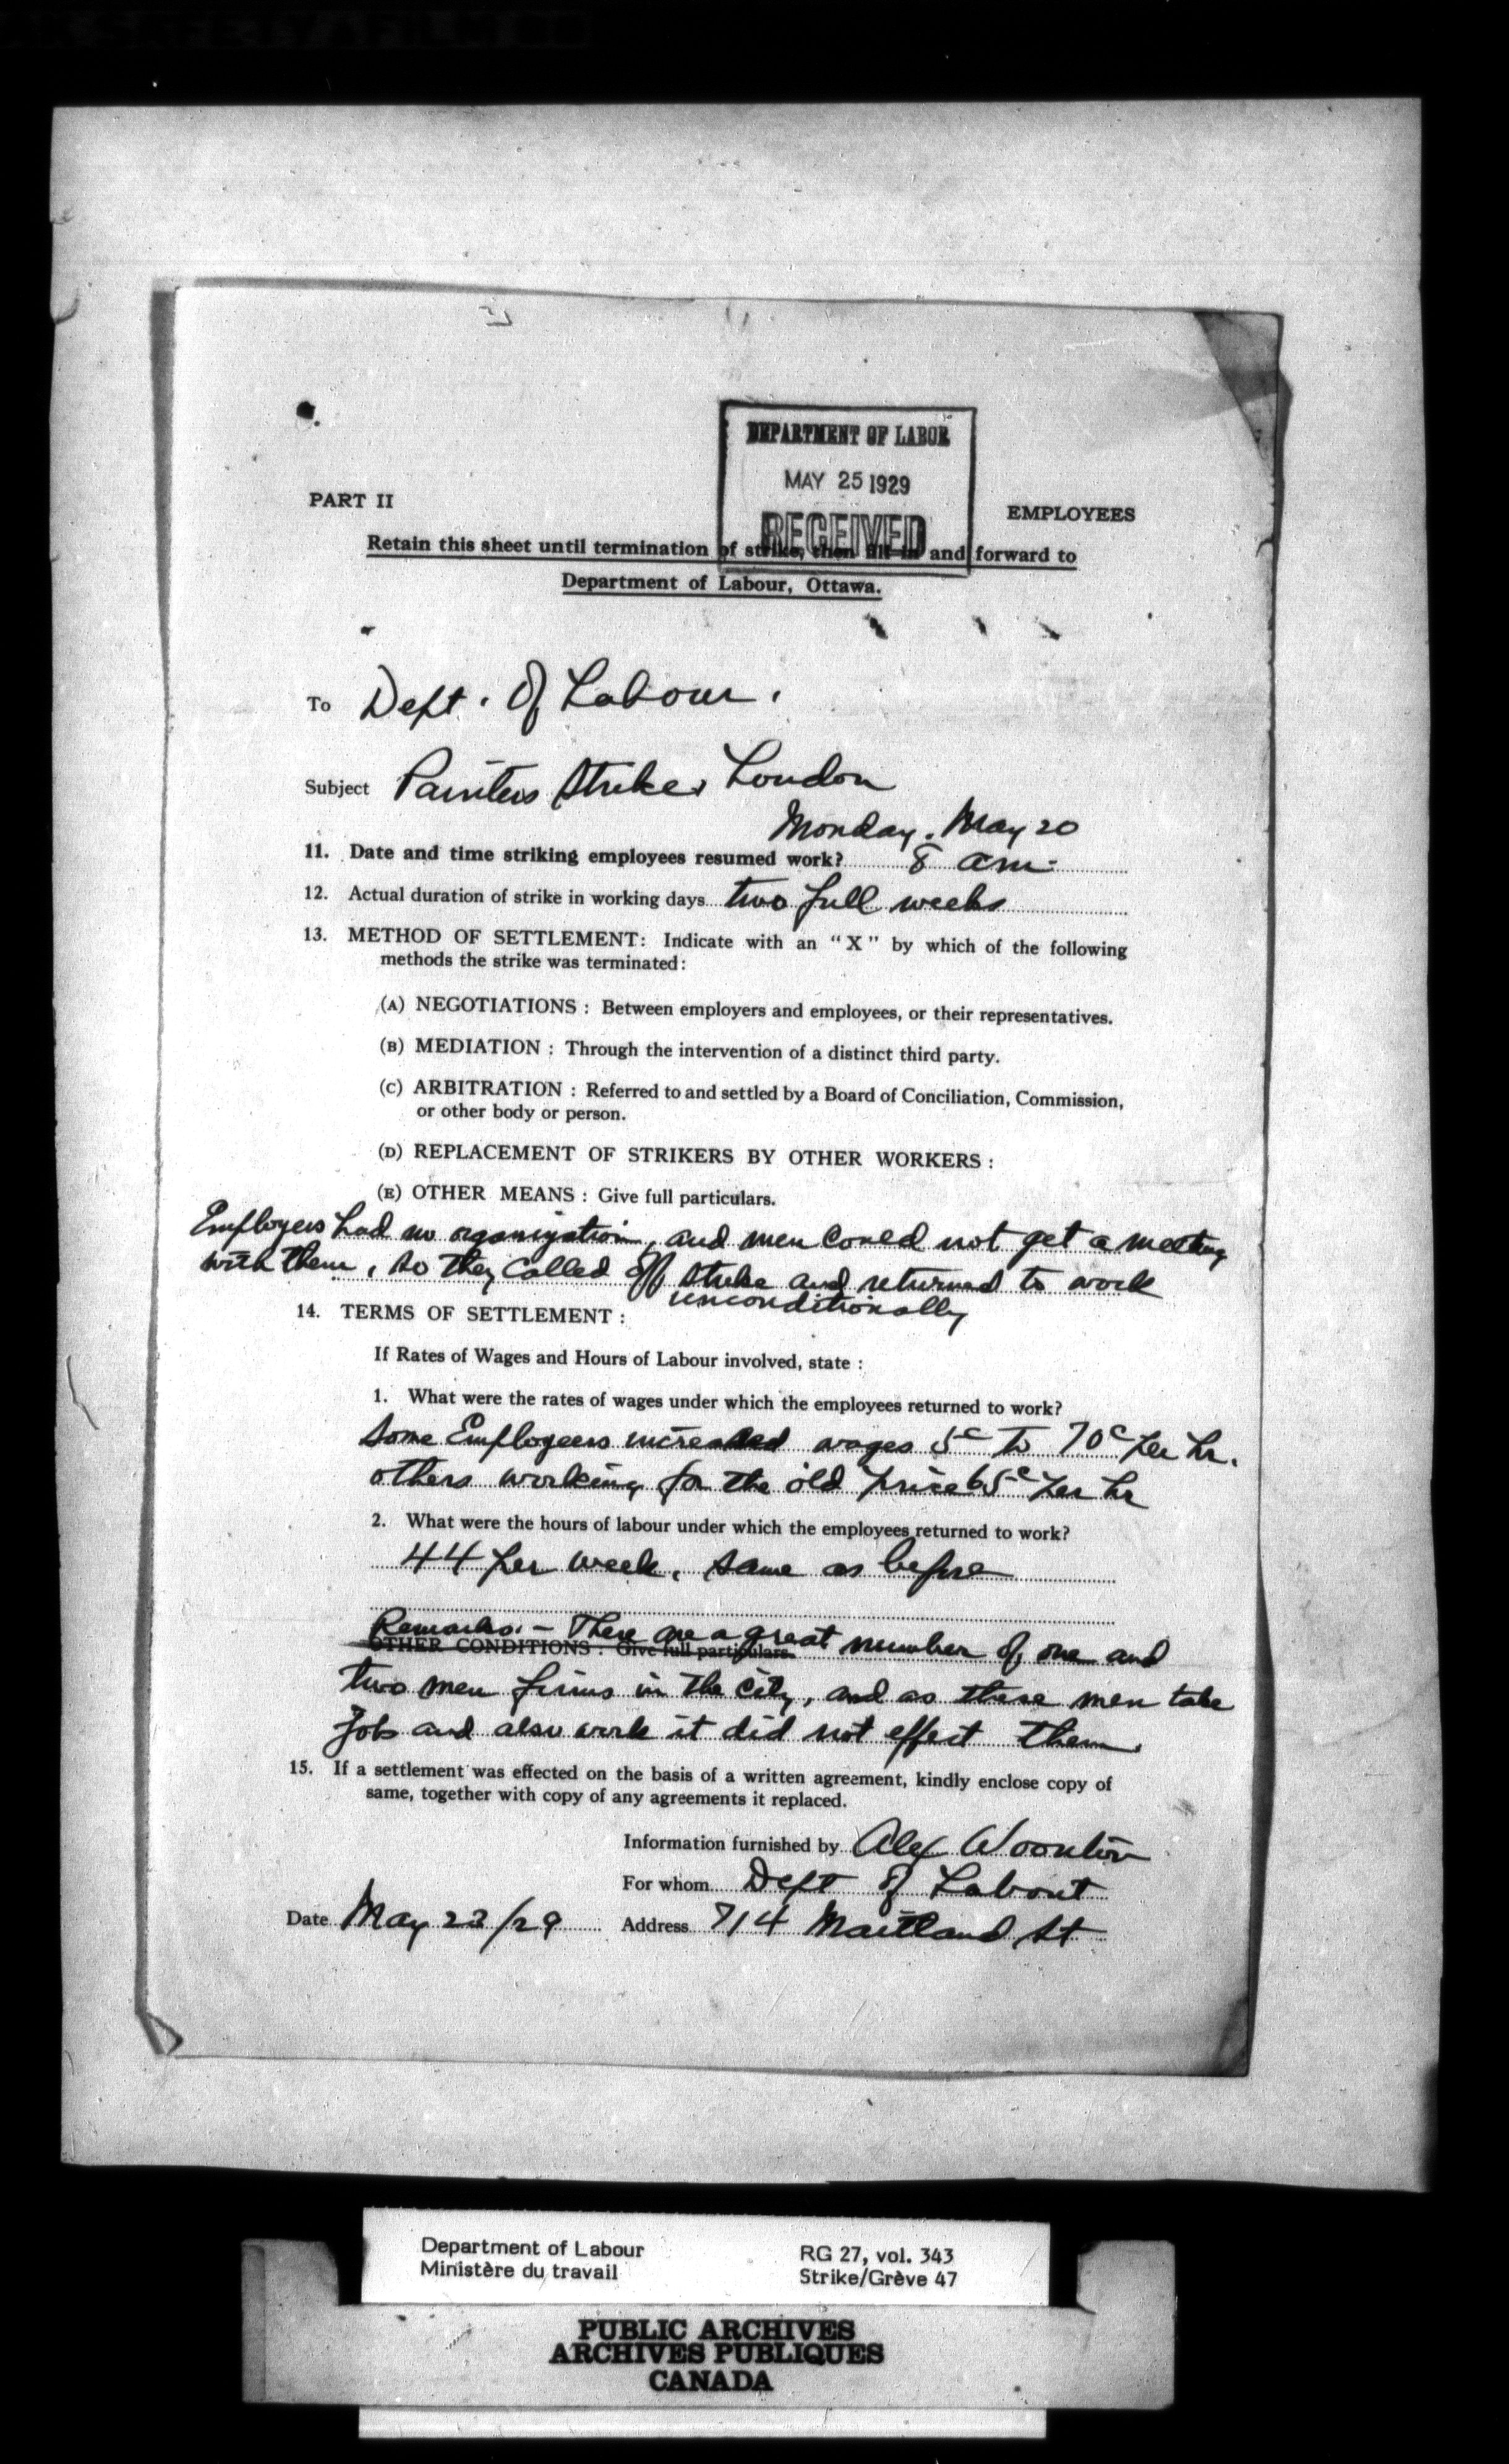 DEPARTMENT OF LABOR
MAY 25 1929
RECEIVED
PART II
EMPLOYEES
Retain this sheet until termination of strike, then fill in and forward to
Department of Labour, Ottawa.
To Dept. of Labour.
Subject Painters Strike, London
Monday. May 20
11. Date and time striking employees resumed work? 8 am.
12. Actual duration of strike in working days two full weeks
13. METHOD OF SETTLEMENT: Indicate with an "X" by which of the following
methods the strike was terminated:
(A) NEGOTIATIONS : Between employers and employees, or their representatives.
(B) MEDIATION : Through the intervention of a distinct third party.
(C) ARBITRATION : Referred to and settled by a Board of Conciliation, Commission,
or other body or person.
(D) REPLACEMENT OF STRIKERS BY OTHER WORKERS :
(E) OTHER MEANS : Give full particulars.
Employers had no organization, and men could not get a meeting
with them, so they called off strike and returned to work
unconditionally
14. TERMS OF SETTLEMENT :
If Rates of Wages and Hours of Labour involved, state :
1. What were the rates of wages under which the employees returned to work?
Some Employers increased wages 5c to 70c per hr.
others working for the old price 65c per hr
2. What were the hours of labour under which the employees returned to work?
44 per week. same as before
Remarks. - There are a great number of one and
OTHER CONDITIONS : Give full particulars.
two men firms in the city, and as these men take
Job and also work it did not effect them.
15. If a settlement was effected on the basis of a written agreement, kindly enclose copy of
same, together with copy of any agreements it replaced.
Information furnished by Alex
For whom Dept of Labout
Date May 23/29 Address 714 Maitland St
Department of Labour
Ministère du travail
RG 27, vol. 343
Strike/Grève 47
PUBLIC ARCHIVES
ARCHIVES PUBLIQUES
CANADA